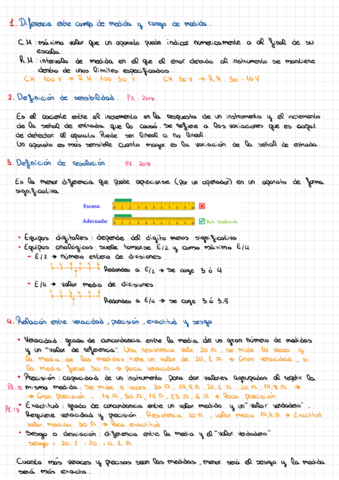 1. Diferencia entre campo de medida y rango de medida.
C.M: máximo valor que un aparato puede indicar numericamente o al final de su
escala.
R.M: intervalo de medida en el que el error debido al instrumento se mantiene
dentro de unos limites especificados.
CM 100 V → R.M: 100-30 V. CM 30 V → R.M: 30-10 V
2. Definición de sensibilidad. P1 2018
Es el cociente entre el incremento en la respuesta de un instrumento y el incremento
de la señal de entrada que la causó. Se refiere a las variaciones que es capaz
de detectar el aparato. Puede ser lineal o no lineal.
Un aparato es más sensible cuanto mayor es la variación de la señal de entrada.
3. Definición de resolución P1 2018
Es la menor diferencia que puede apreciarse (por un operador) en un aparato de forma
significativa.
Escaso:
Adecuado: Más resolución
• Equipos digitales: depende del digito menos significativo
• Equipos analógicos suele tomarse E/2 y como máximo E/4
- E/2 → número entero de divisiones
Redondeo a E/2 → se coge 3 ó 4
- E/4 → valor medio de divisiones
Redondeo a E/4 → se coge 3 ó 3.5
4. Relación entre veracidad, precisión, exactitud y sesgo
• Veracidad: grado de concordancia entre la media de un gran número de medidas
y un "valor de referencia". Una resistencia vale 20 Ω, se mide 10 veces y
la media de las medidas tiene un valor de 20,1 Ω → Gran veracidad, si
la media fuese 30 Ω → poca veracidad
• Precisión: capacidad de un instrumento para dar valores agrupados al repetir la
misma medida. Se mide 5 veces
→ Gran precisión. → Poca precisión
• Exactitud: grado de concordancia entre un valor medido y un "valor verdadero".
Requiere veracidad y precisión. Resistencia 20 Ω, valor medio 19,9 Ω → Exactitud
valor medido 30 Ω → Poca exactitud
• Sesgo o desviación: diferencia entre la media y el "valor verdadero"
Sesgo = 20,1 - 20 = 0,1 Ω
Cuanto más veraces y precisas sean las medidas, menor será el sesgo y la medida
será más exacta.